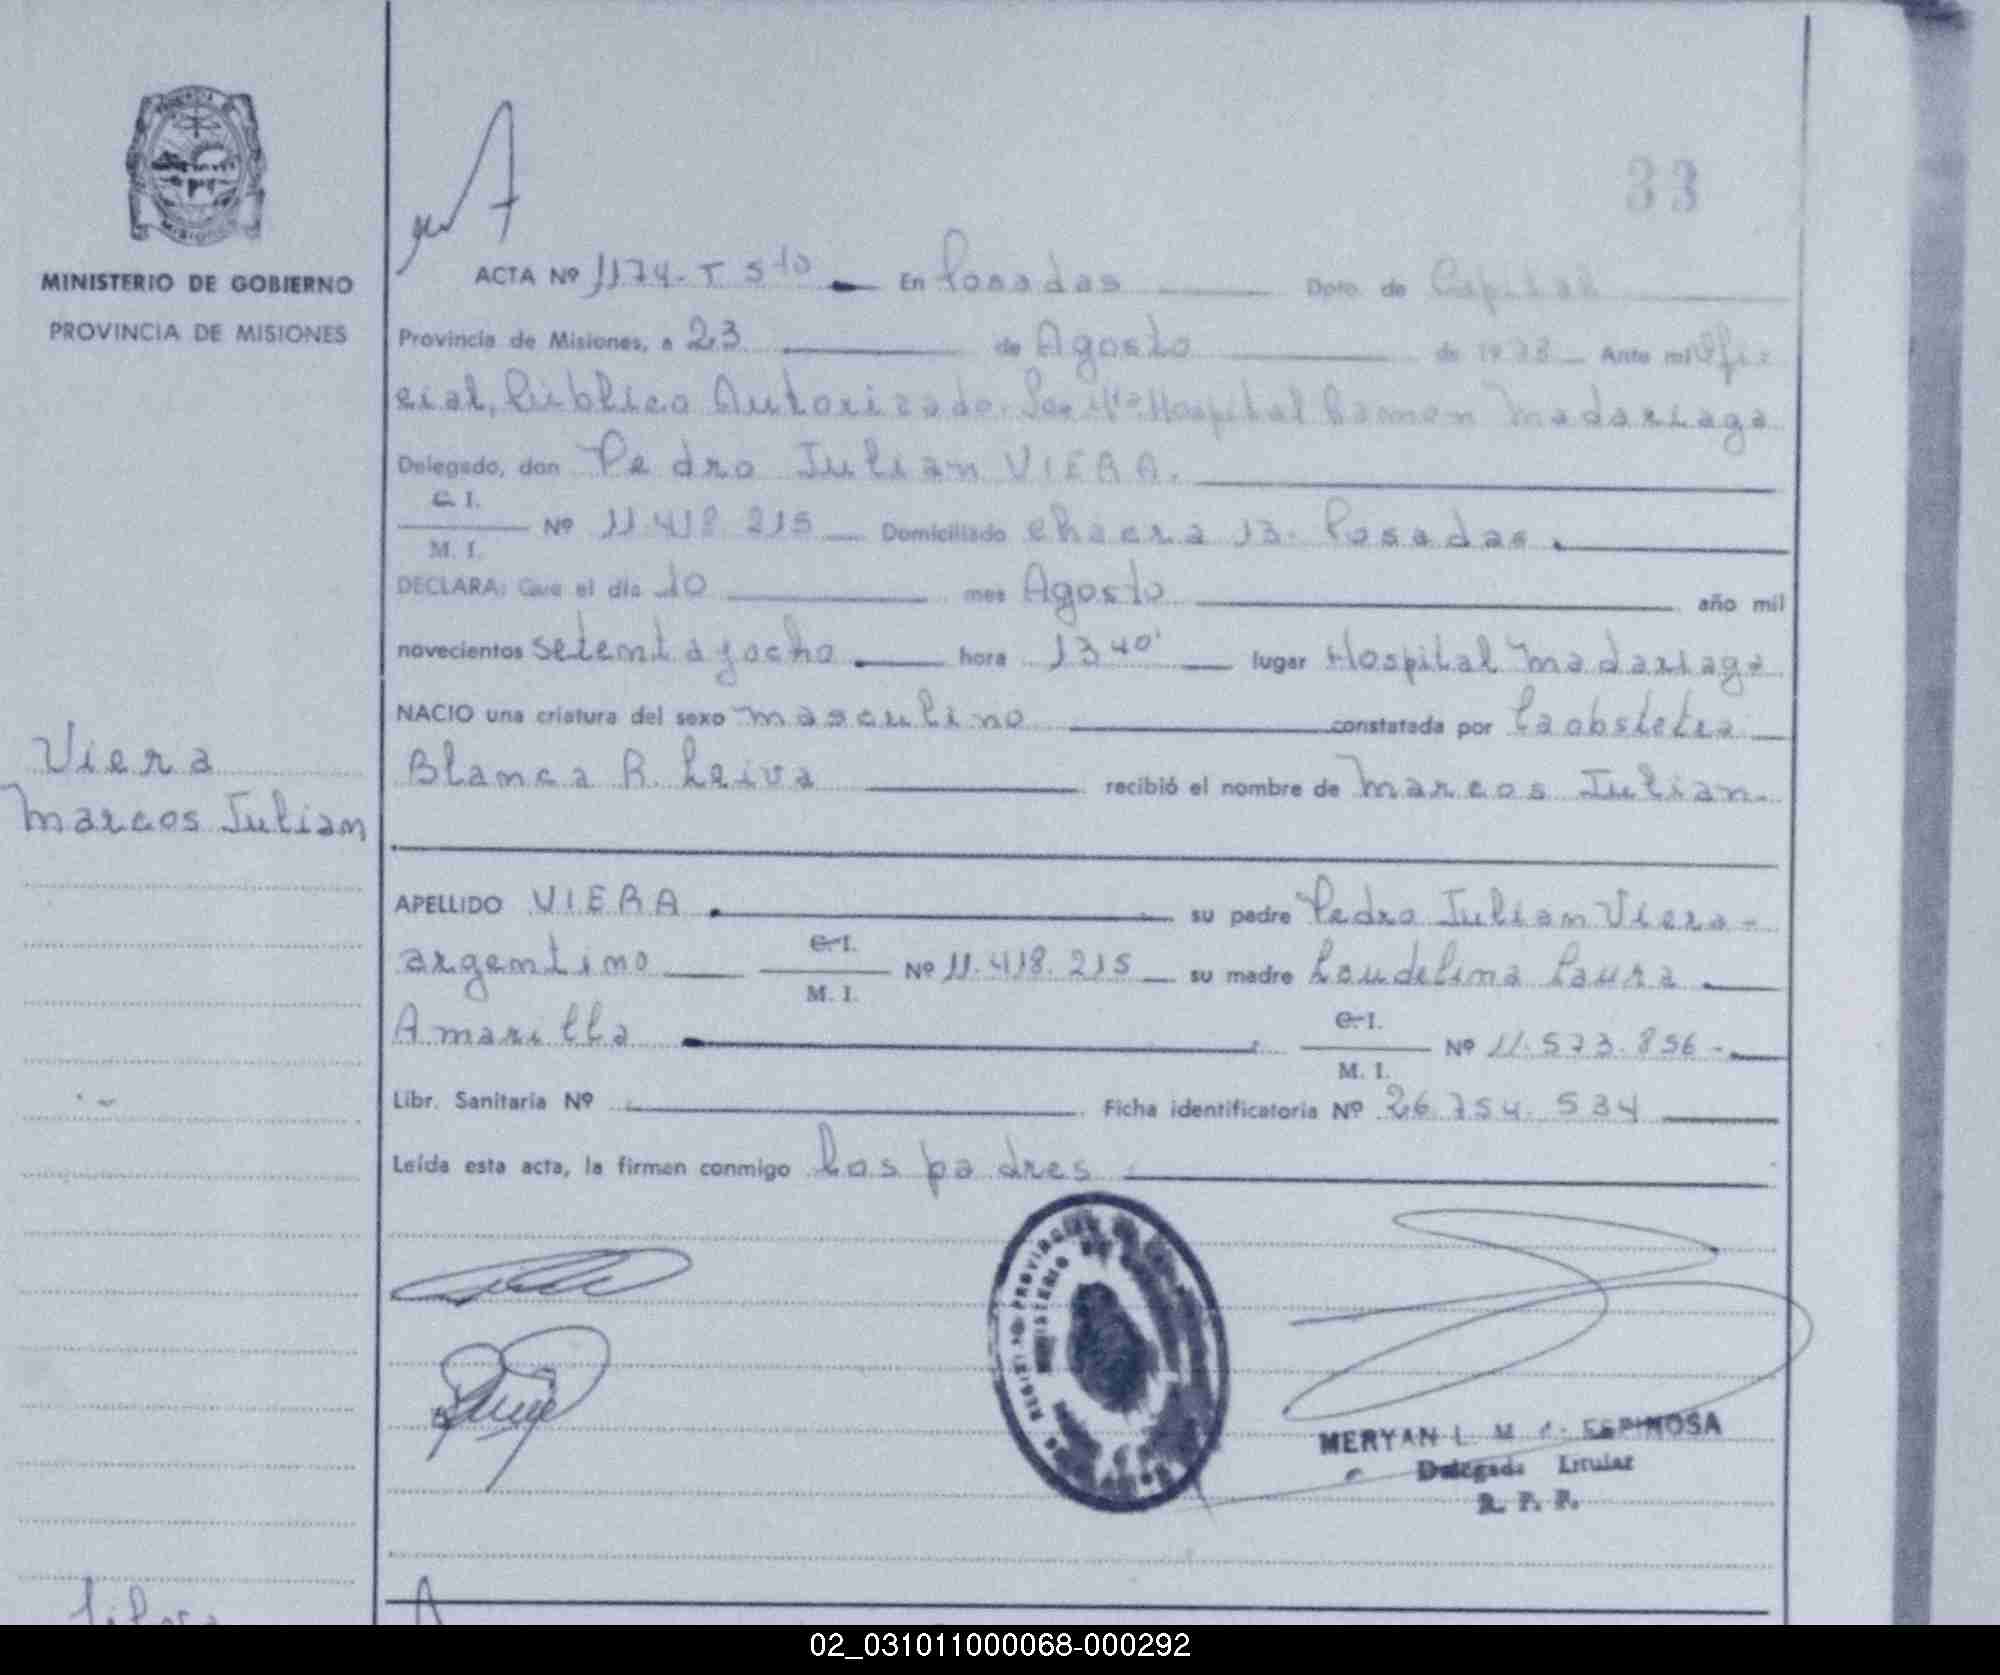 33
ACTA Nº 1174-T 5to En Posadas Dpto. de Capital
MINISTERIO DE GOBIERNO
PROVINCIA DE MISIONES
Provincia de Misiones, a 23 de Agosto de 1978 Ante mi Ofi
cial, Público Autorizado. Hospital Ramon Madariaga
Delegado, don Pedro Julian VIERA.
C. I.
Nº 11.418.215 Domiciliado Chacra 13. Posadas.
M. I.
DECLARA: Que el día 10 mes Agosto año mil
novecientos setenta y ocho hora 13 40' lugar Hospital Madariaga
NACIO una criatura del sexo masculino constatada por la obstetra
Blanca R. Leiva recibió el nombre de Marcos Julian.
Viera
Marcos Julian
APELLIDO VIERA su padre Pedro Julian Viera-
argentino C. I. Nº 11.418.215 su madre Laura
M. I.
Amarilla C. I. Nº 11.573.856-
M. I.
Libr. Sanitaria Nº Ficha identificatoria Nº 26.754.534
Leída esta acta, la firman conmigo los padres
MERYAN L. M. d. ESPINOSA
Delegada Titular
R. P. P.
02_031011000068-000292